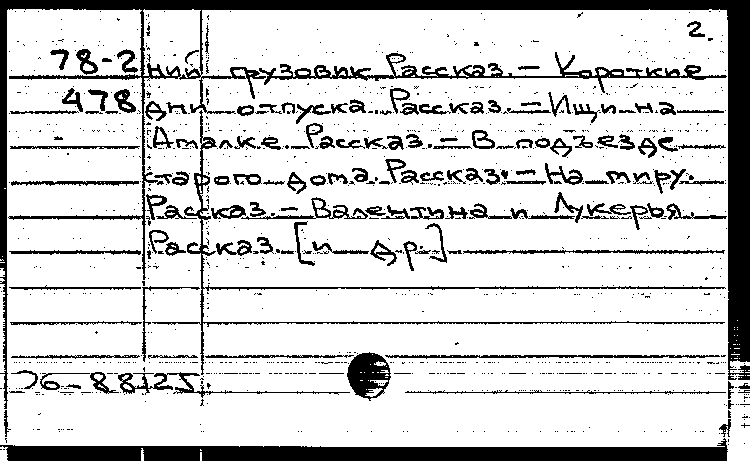 2.
78-2 ний грузовик. Рассказ. – Короткие
478 дни отпуска. Рассказ. – Ищи на
Аталке. Рассказ. – В подъезде
старого дома. Рассказ. – На миру.
Рассказ. – Валентина и Лукерья.
Рассказ. [и др.]
06-88125.